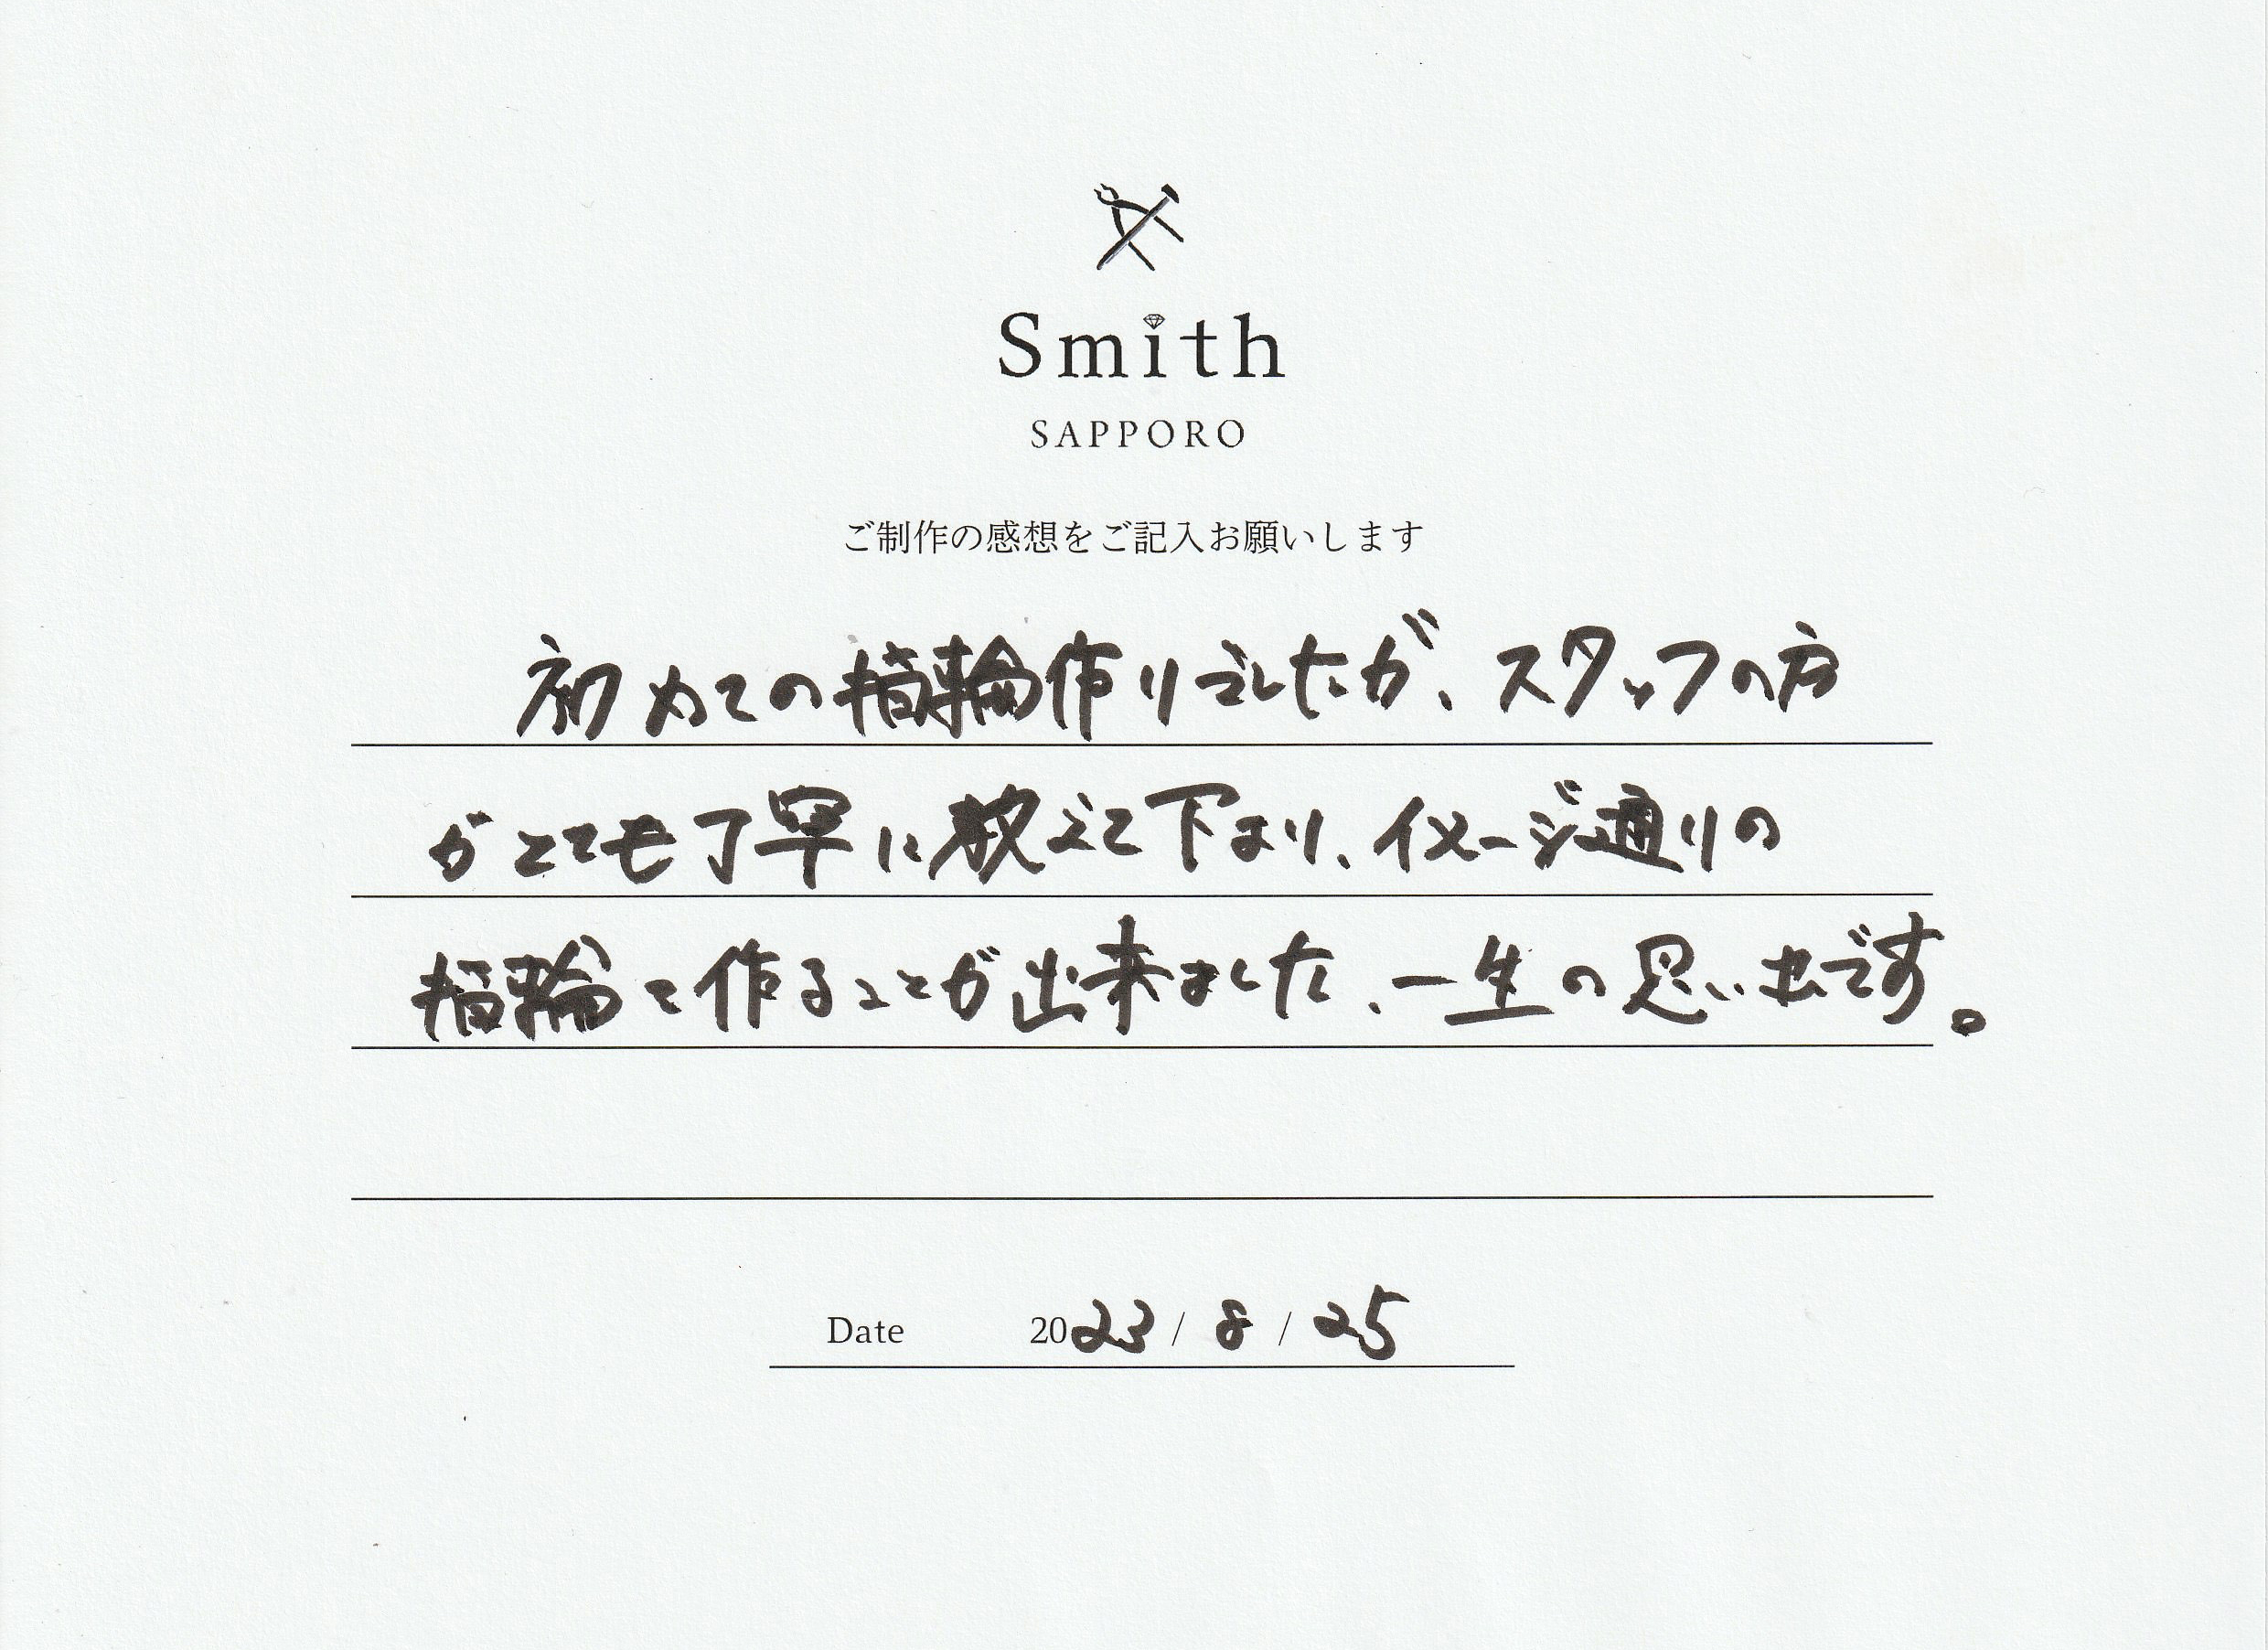 Smith
SAPPORO
ご制作の感想をご記入お願いします
初めての指輪作りでしたが、スタッフの方
がとても丁寧に教えて下さり、イメージ通りの
指輪を作ることが出来ました、一生の思い出です。
Date 2023 / 8 / 25